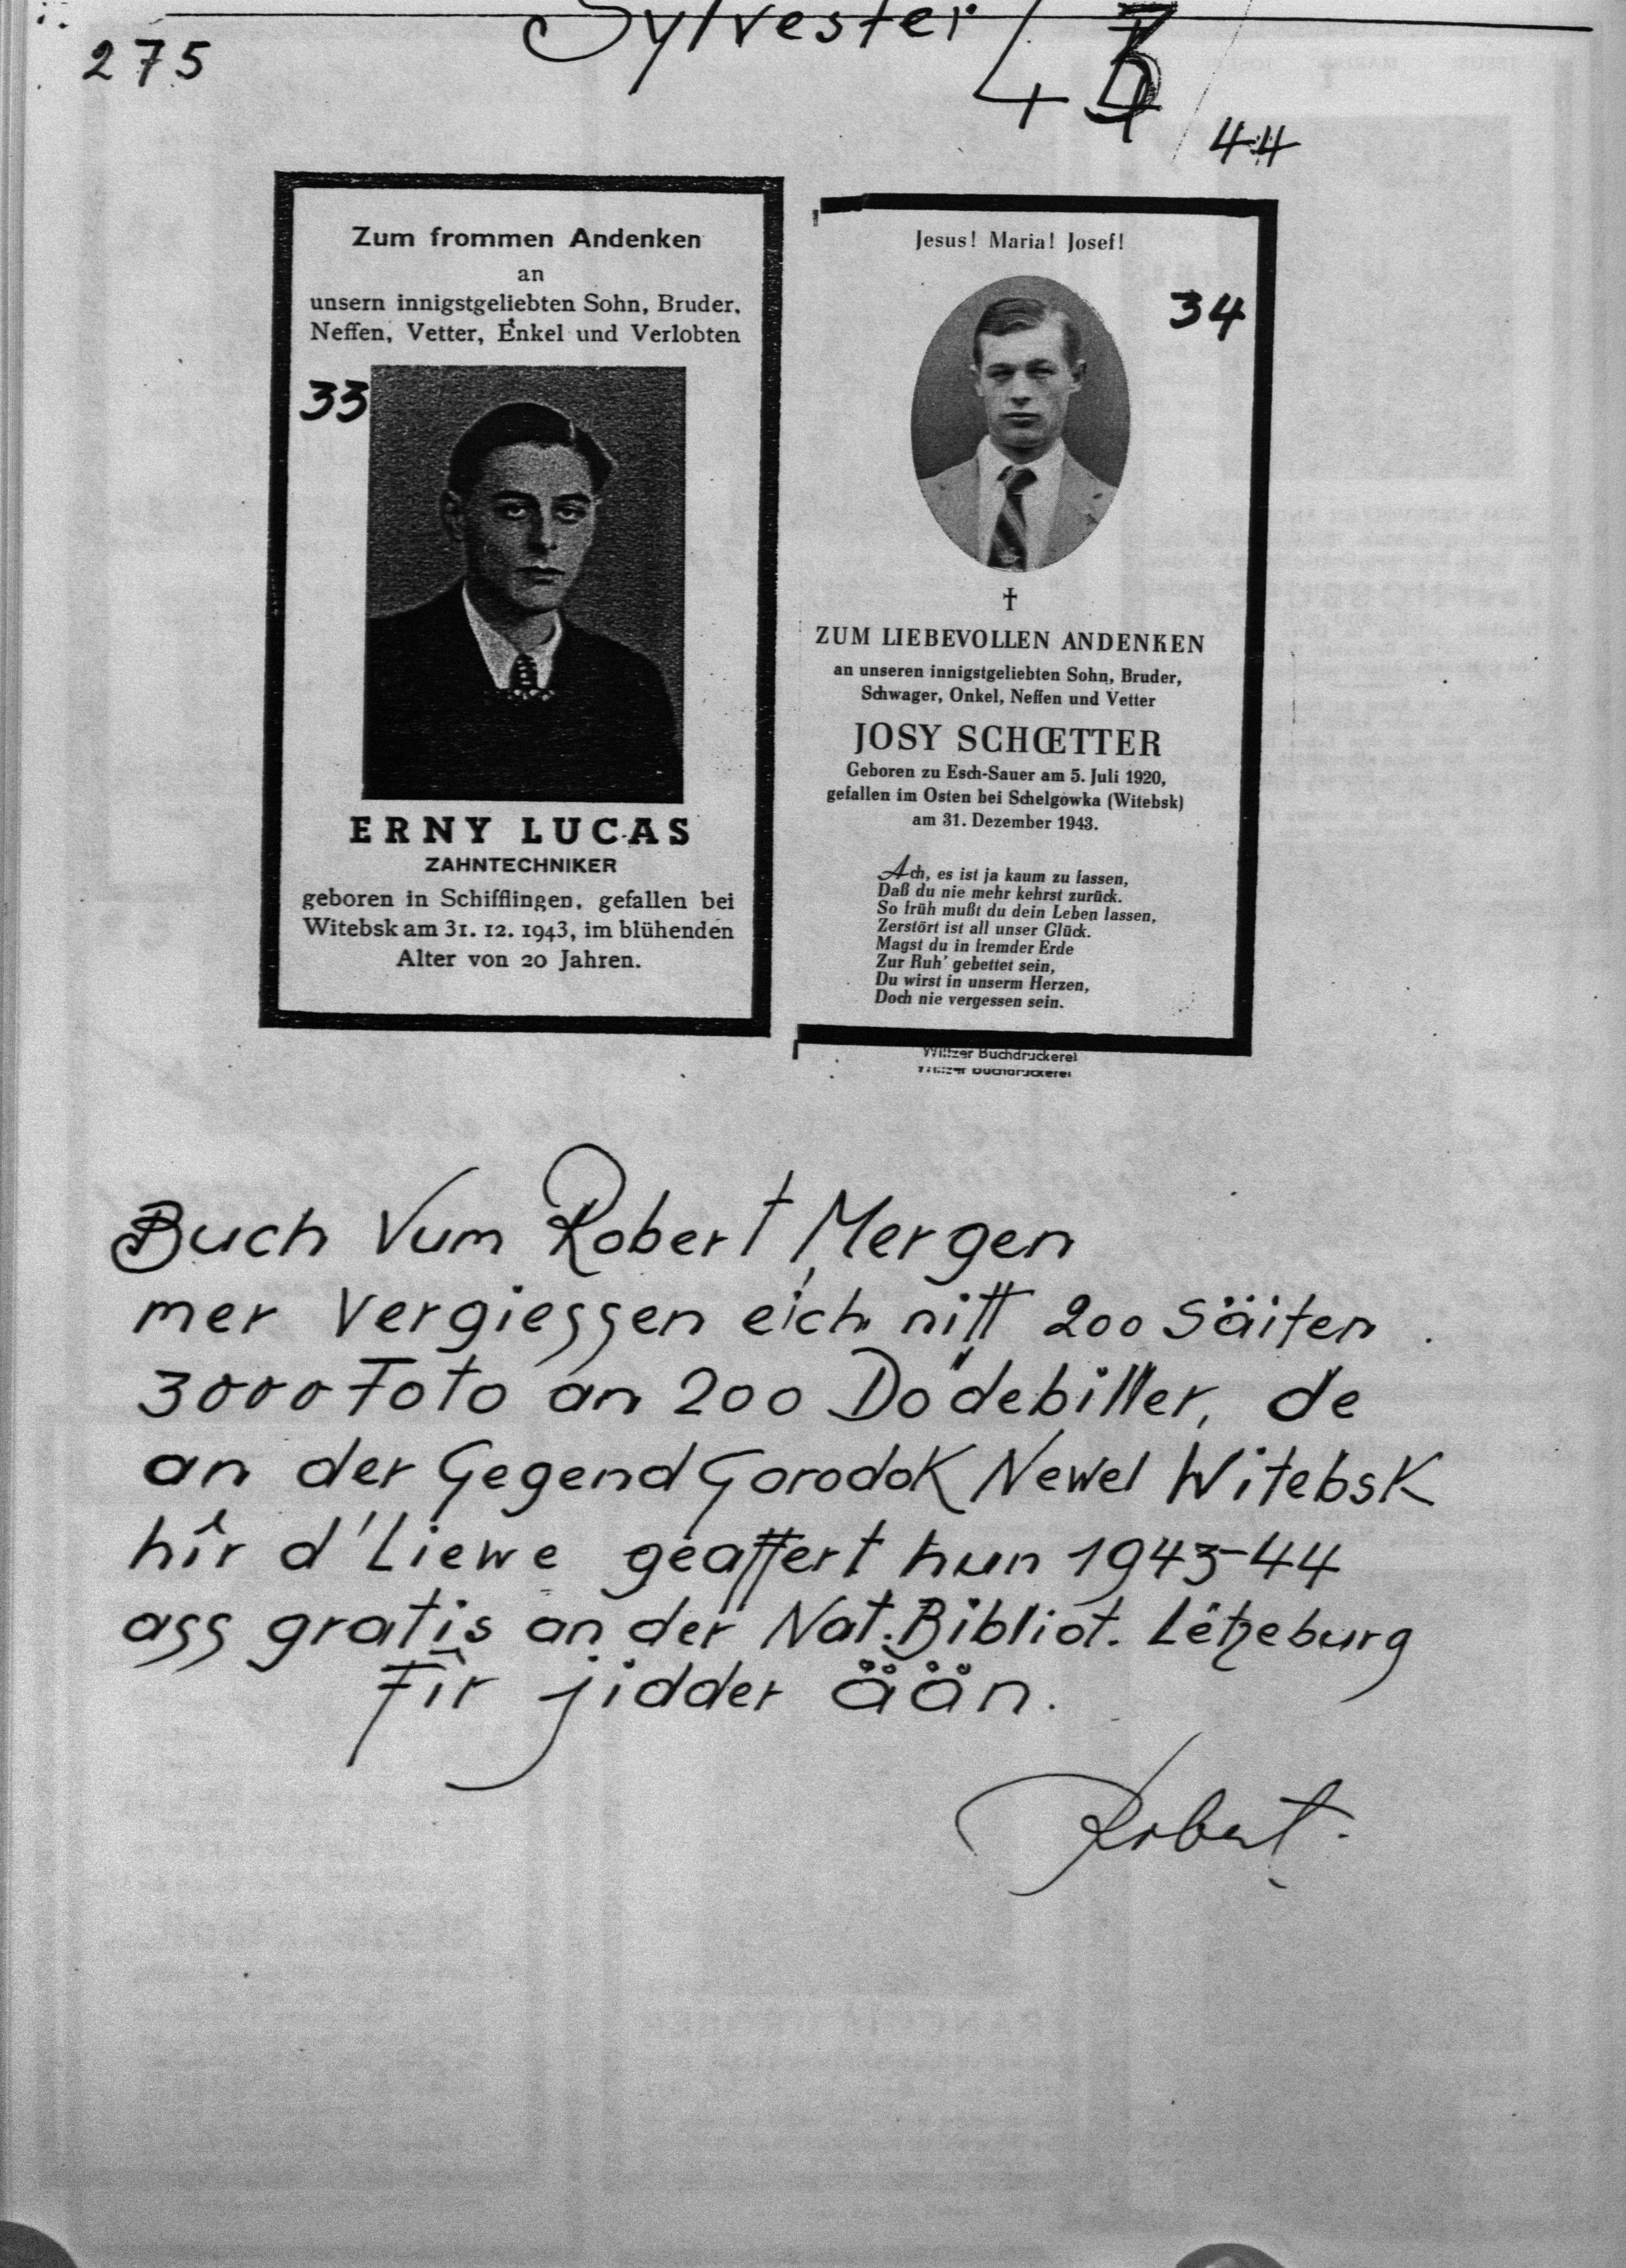 275
Sylvester
44
Zum frommen Andenken
an
unsern innigstgeliebten Sohn, Bruder,
Neffen, Vetter, Enkel und Verlobten
33
ERNY LUCAS
ZAHNTECHNIKER
geboren in Schifflingen, gefallen bei
Witebsk am 31. 12. 1943, im blühenden
Alter von 20 Jahren.
Jesus! Maria! Josef!
34
†
ZUM LIEBEVOLLEN ANDENKEN
an unseren innigstgeliebten Sohn, Bruder,
Schwager, Onkel, Neffen und Vetter
JOSY SCHŒTTER
Geboren zu Esch-Sauer am 5. Juli 1920,
gefallen im Osten bei Schelgowka (Witebsk)
am 31. Dezember 1943.
Ach, es ist ja kaum zu fassen,
Daß du nie mehr kehrst zurück.
So früh mußt du dein Leben lassen,
Zerstört ist all unser Glück.
Magst du in fremder Erde
Zur Ruh' gebettet sein,
Du wirst in unserm Herzen,
Doch nie vergessen sein.
Wiltzer Buchdruckerei
Wiltzer Buchdruckerei
Buch Vum Robert Mergen
mer Vergiessen eich nitt 200 Säiten
3000 Foto an 200 Dödebiller, de
an der Gegend Gorodok Newel Witebsk
hîr d'Liewe geaffert hun 1943-44
ass gratis an der Nat. Bibliot. Lëtzeburg
Fîr jidder åån.
Robert.